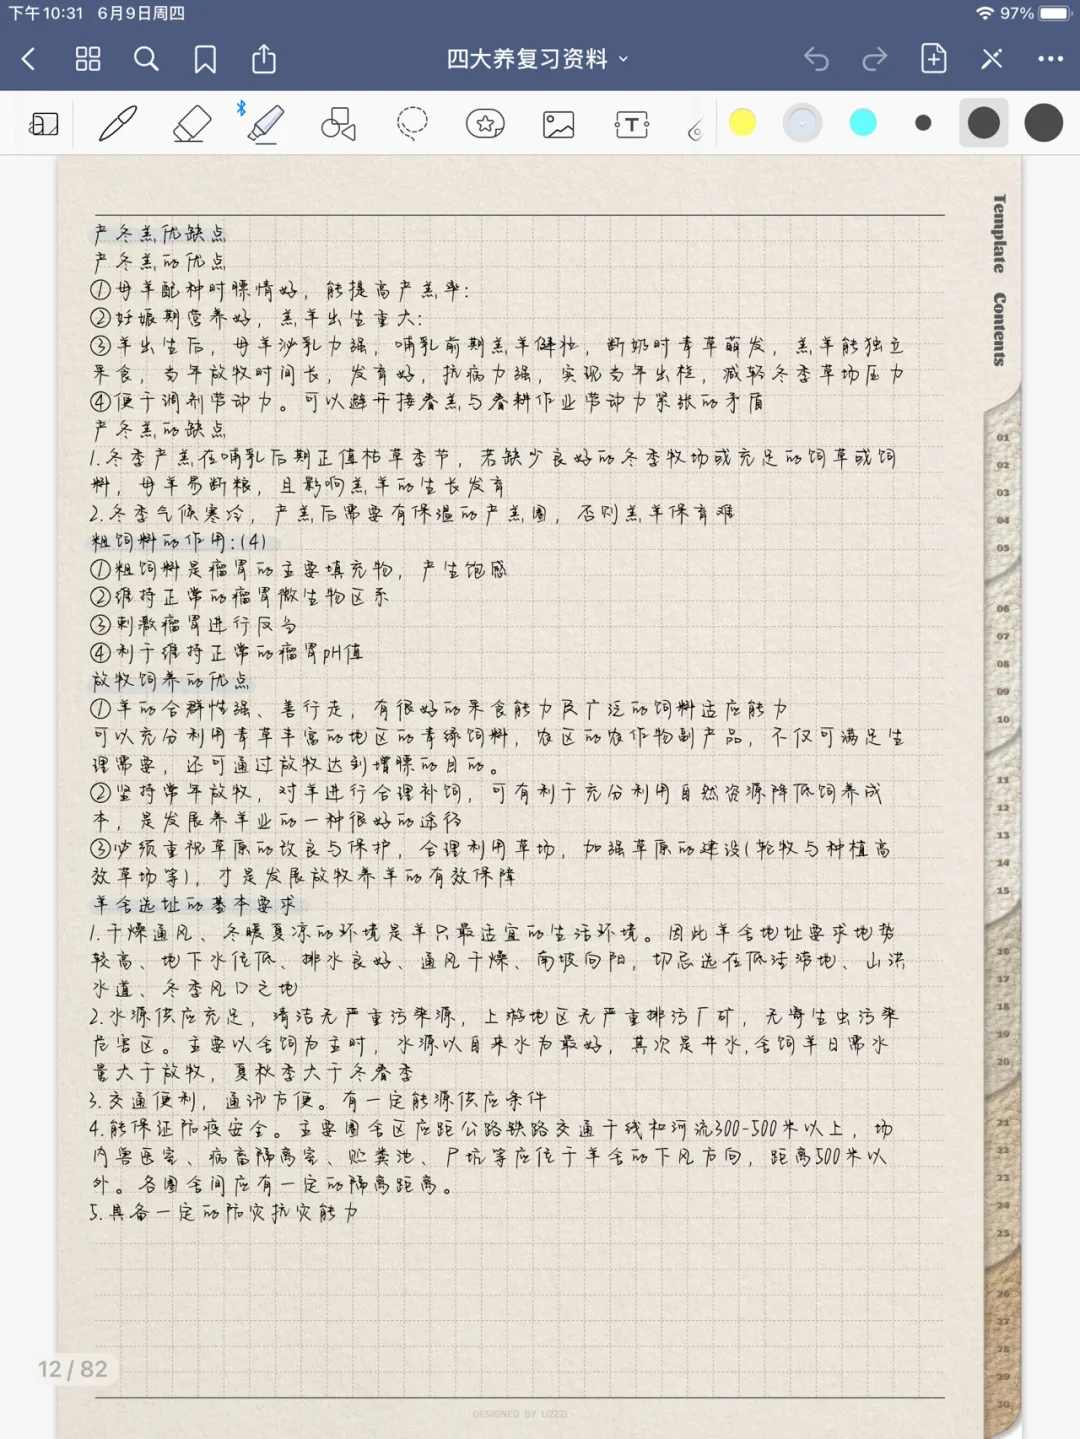 下午10:31 6月9日周四
97%
四大养复习资料
T
Template Contents
产冬羔优缺点
产冬羔的优点
①母羊配种时膘情好，能提高产羔率：
②妊娠期营养好，羔羊出生重大：
③羊出生后，母羊泌乳力强，哺乳前期羔羊健壮，断奶时青草萌发，羔羊能独立
采食，当年放牧时间长，发育好，抗病力强，实现当年出栏，减轻冬季草场压力
④便于调剂劳动力。可以避开接春羔与春耕作业劳动力紧张的矛盾
产冬羔的缺点
1.冬季产羔在哺乳后期正值枯草季节，若缺少良好的冬季牧场或充足的饲草或饲
料，母羊易断粮，且影响羔羊的生长发育
2.冬季气候寒冷，产羔后需要有保温的产羔圈，否则羔羊保育难
粗饲料的作用：(4)
①粗饲料是瘤胃的主要填充物，产生饱感
②维持正常的瘤胃微生物区系
③刺激瘤胃进行反刍
④利于维持正常的瘤胃pH值
放牧饲养的优点
①羊的合群性强、善行走，有很好的采食能力及广泛的饲料适应能力
可以充分利用青草丰富的地区的青绿饲料，农区的农作物副产品，不仅可满足生
理需要，还可通过放牧达到增膘的目的。
②坚持常年放牧，对羊进行合理补饲，可有利于充分利用自然资源降低饲养成
本，是发展养羊业的一种很好的途径
③必须重视草原的改良与保护，合理利用草场，加强草原的建设(轮牧与种植高
效草场等)，才是发展放牧养羊的有效保障
羊舍选址的基本要求
1.干燥通风、冬暖夏凉的环境是羊只最适宜的生活环境。因此羊舍地址要求地势
较高、地下水位低、排水良好、通风干燥、南坡向阳，切忌选在低洼涝地、山洪
水道、冬季风口之地
2.水源供应充足，清洁无严重污染源，上游地区无严重排污厂矿，无寄生虫污染
危害区。主要以舍饲为主时，水源以自来水为最好，其次是井水，舍饲羊日需水
量大于放牧，夏秋季大于冬春季
3.交通便利，通讯方便。有一定能源供应条件
4.能保证防疫安全。主要圈舍区应距公路铁路交通干线和河流300-500米以上，场
内兽医室、病畜隔离室、贮粪池、尸坑等应位于羊舍的下风方向，距离500米以
外。各圈舍间应有一定的隔离距离。
5.具备一定的防灾抗灾能力
01
02
03
04
05
06
07
08
09
10
11
12
13
14
15
16
17
18
19
20
21
22
23
24
25
26
27
28
29
30
12 / 82
DESIGNED BY LIZZZI